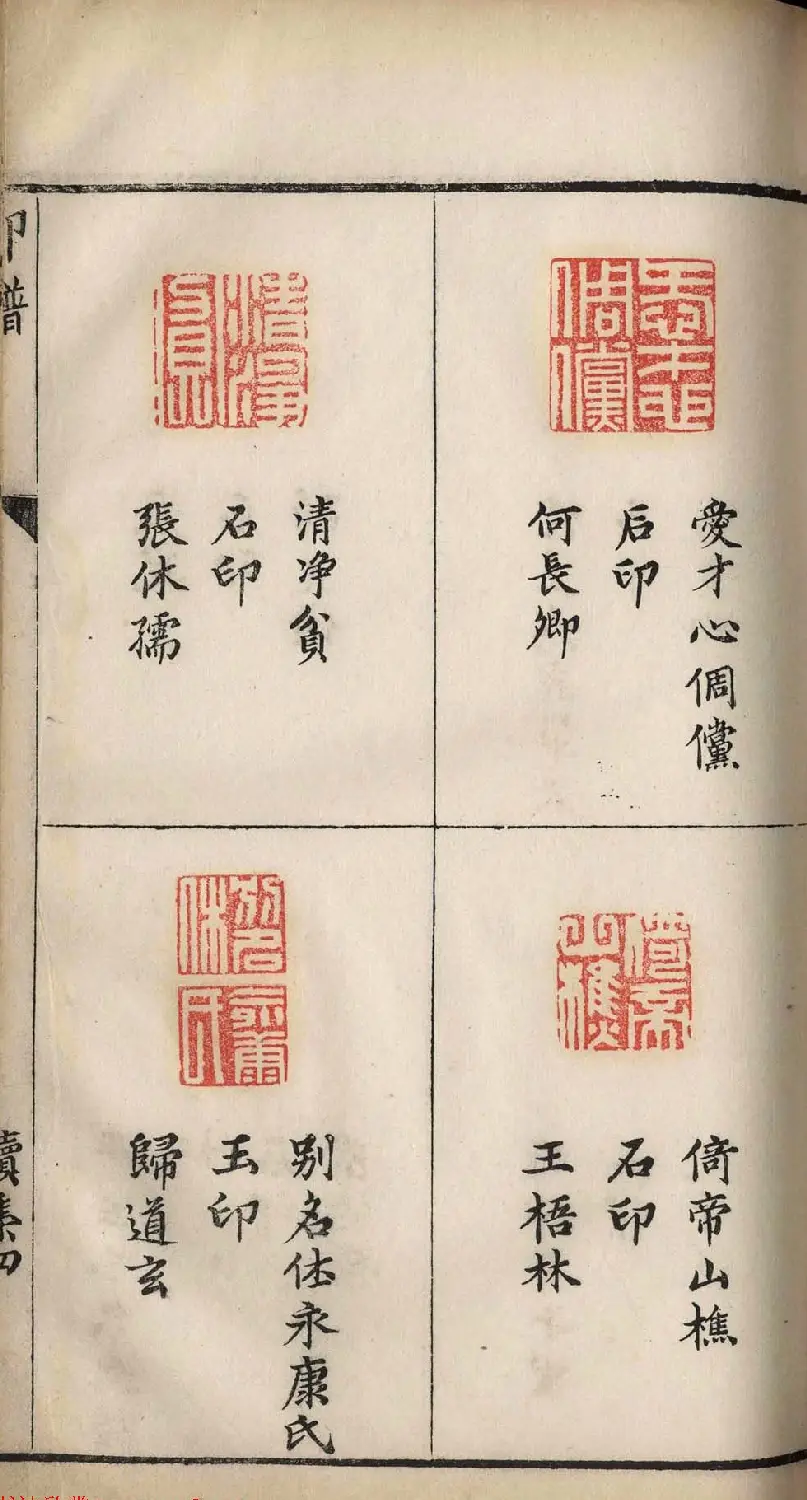 愛才心倜儻
石印
何長卿
倚帝山樵
石印
王梧林
清净貧
石印
張休孺
别名佅永康氏
玉印
歸道玄
印譜
續集四